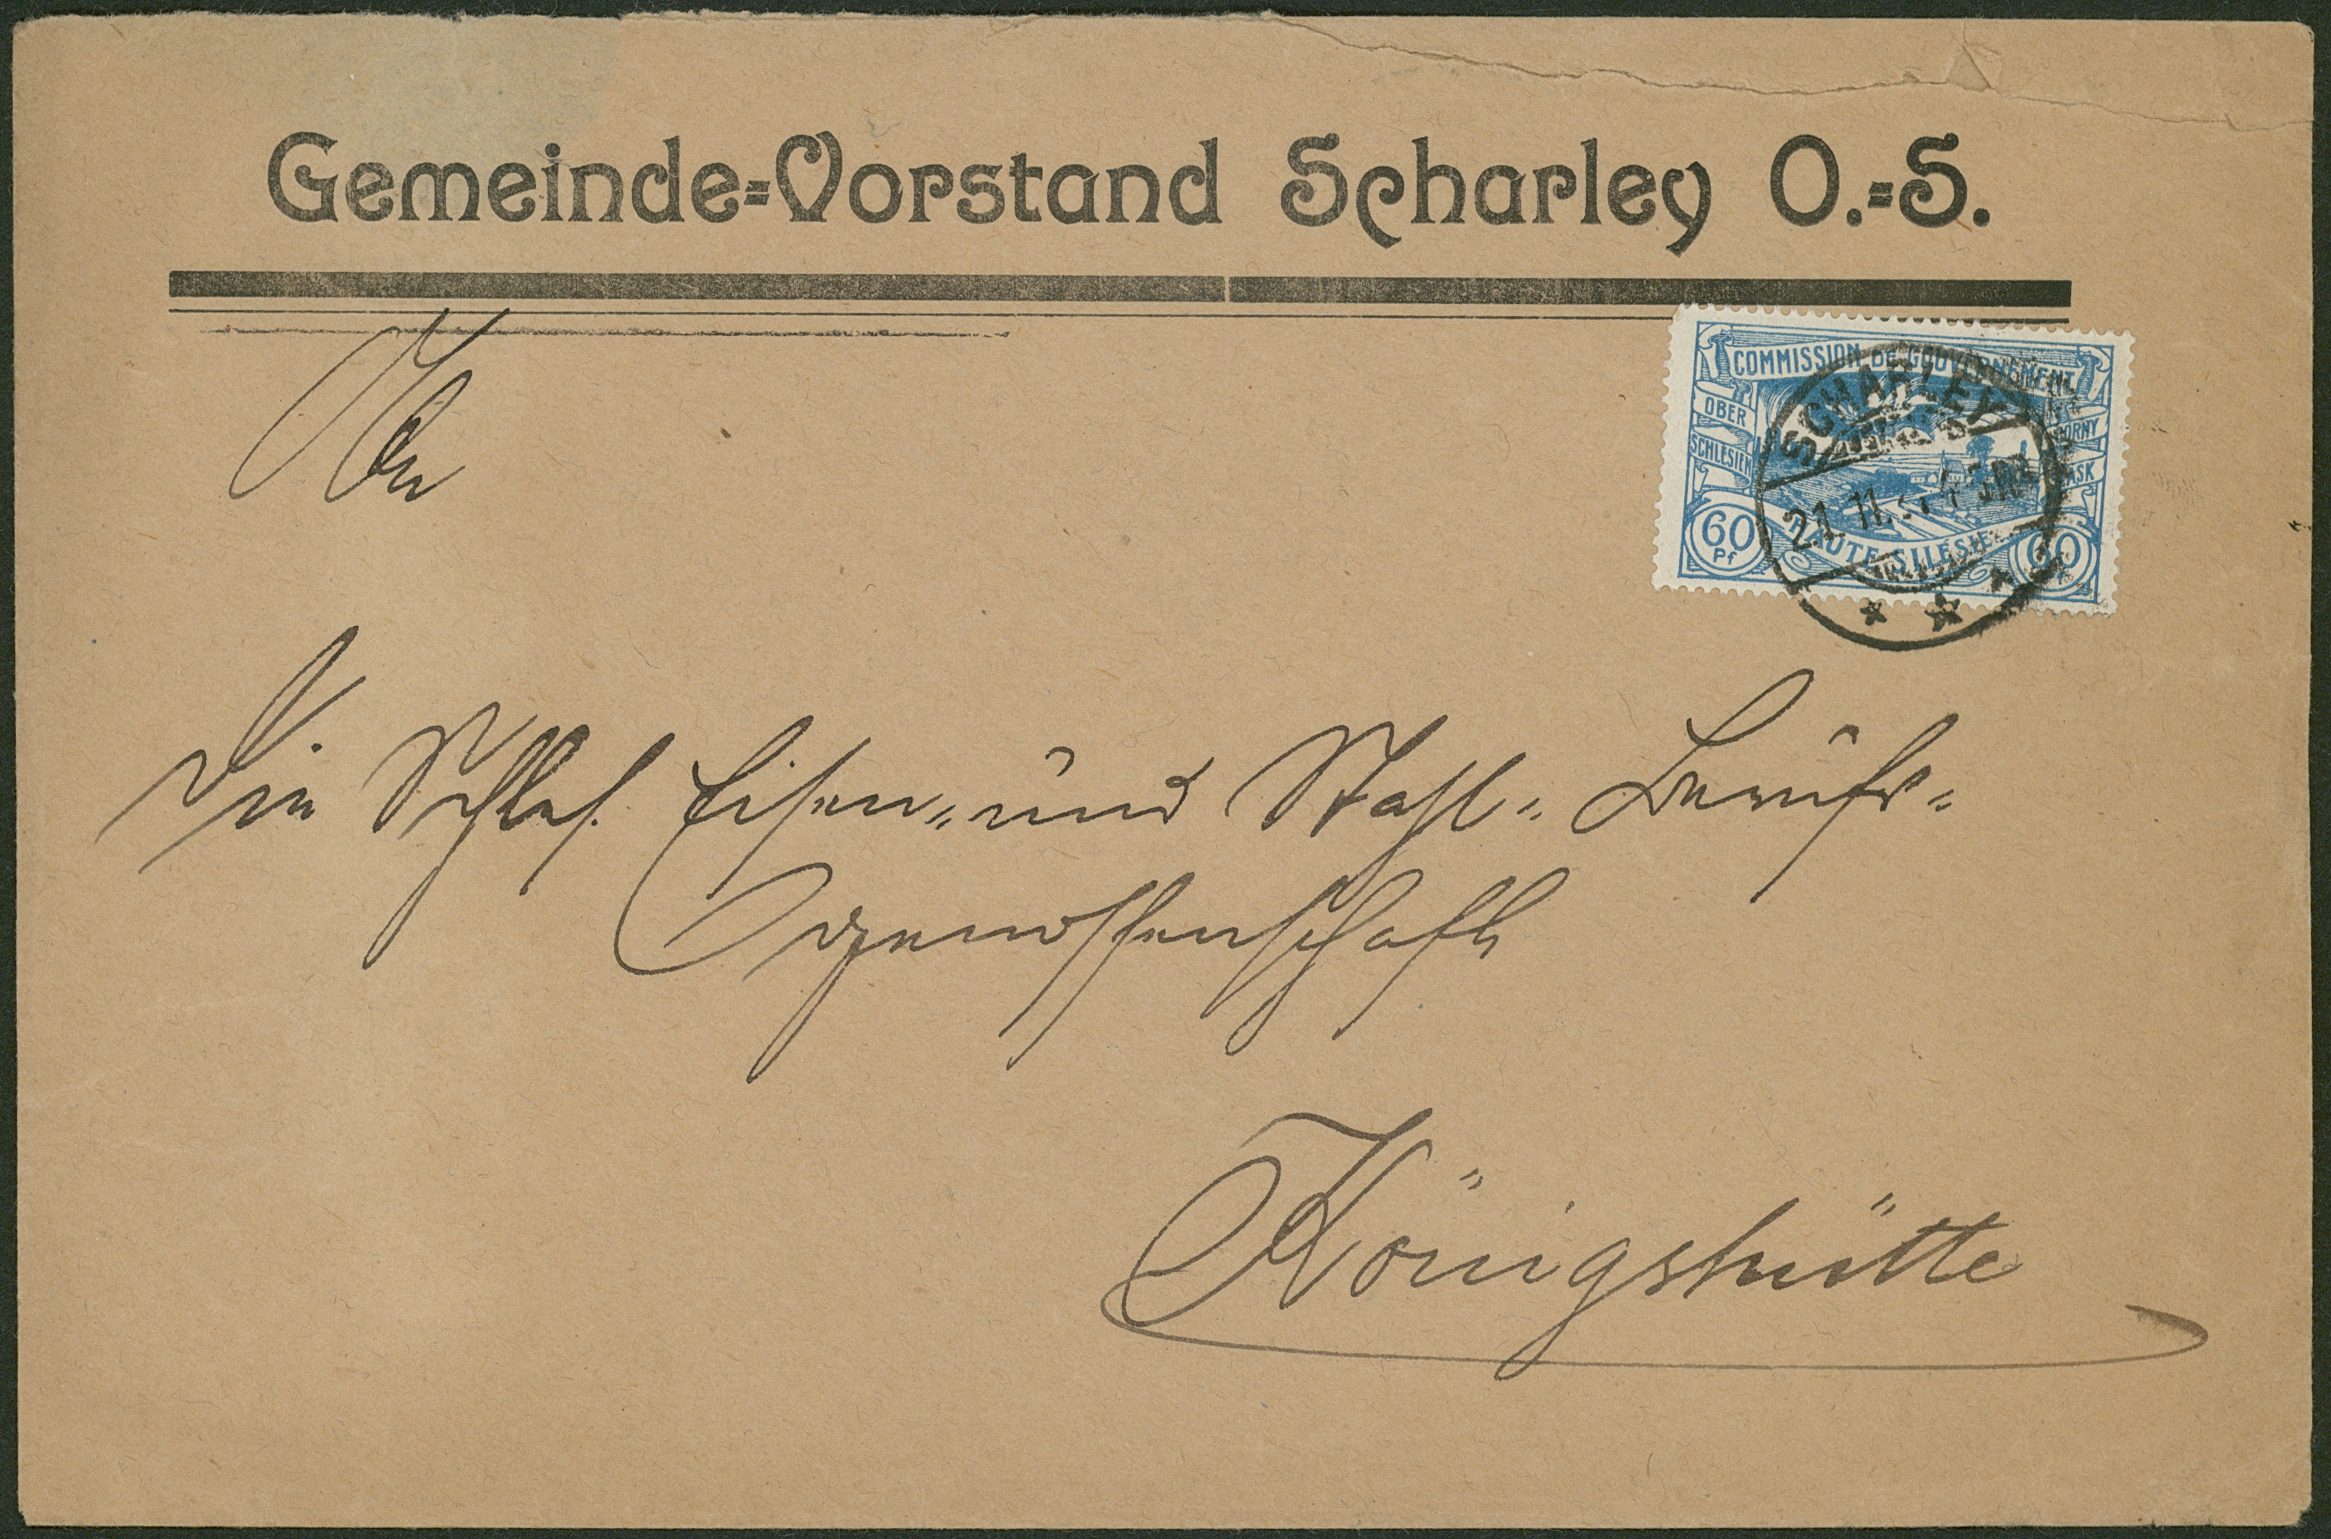 Gemeinde=Vorstand Scharley O.=S.
An
COMMISSION DE GOUVERNEMENT
OBER
SCHLESIEN
GORNY
HAUTE SILESIE
60
Pf
60
SCHARLEY
21.11.
die Schles. Eisen- und Stahl- Berufs-
genossenschaft
Königshütte